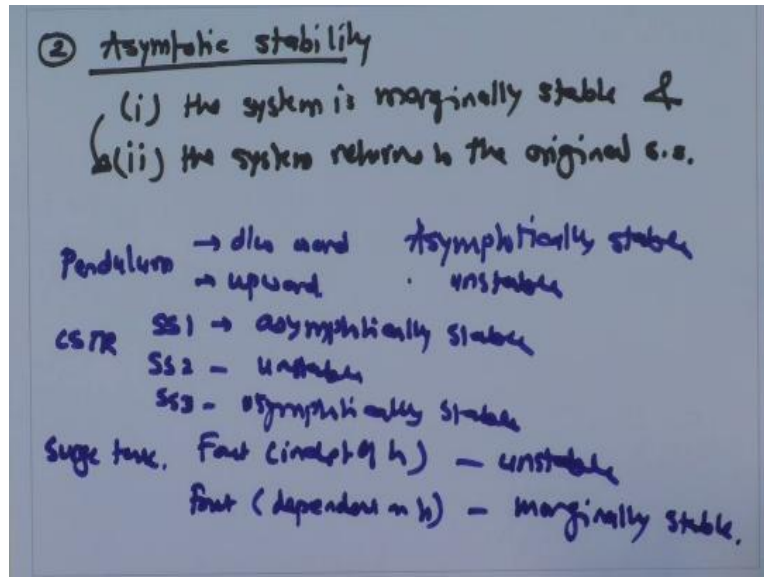 ② Asymptotic stability
(i) the system is marginally stable &
(ii) the system returns to the original s.s.
Pendulum → d/w ward Asymptotically stable
→ upward unstable
CSTR SS1 → asymptotically stable
SS2 – unstable
SS3 – asymptotically stable
Surge tank. Fout (indept of h) – unstable
Fout (dependent on h) – marginally stable.